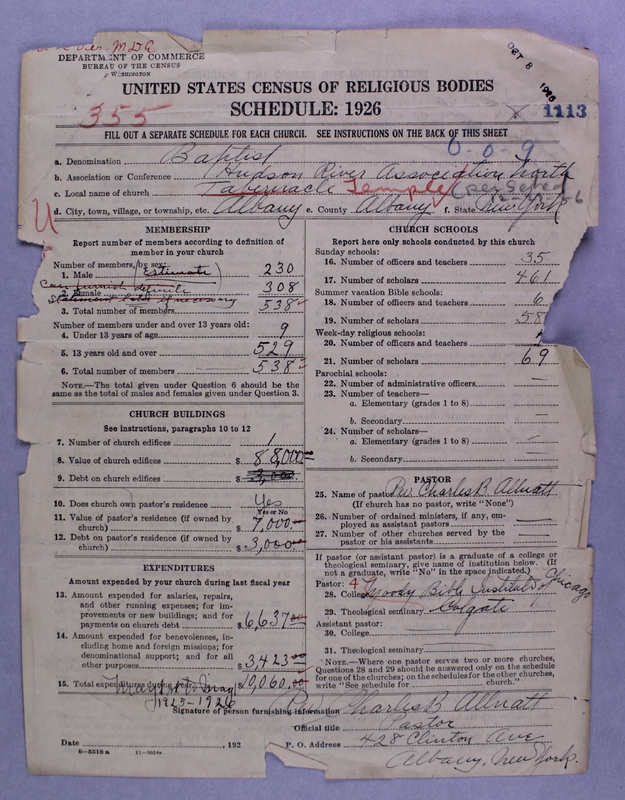 DEPARTMENT OF COMMERCE
BUREAU OF THE CENSUS
WASHINGTON
OCT 8 1926
UNITED STATES CENSUS OF RELIGIOUS BODIES
SCHEDULE: 1926
355
X 1113
FILL OUT A SEPARATE SCHEDULE FOR EACH CHURCH. SEE INSTRUCTIONS ON THE BACK OF THIS SHEET
0-0-9
a. Denomination Baptist
b. Association or Conference Hudson River Association North
c. Local name of church Tabernacle Temple
d. City, town, village, or township, etc. Albany e. County Albany f. State New York
MEMBERSHIP
Report number of members according to definition of
member in your church
Number of members, by sex:
1. Male (Estimate) 230
Can furnish definite
2. Female 308
statement later if necessary
3. Total number of members 538
Number of members under and over 13 years old:
4. Under 13 years of age 9
5. 13 years old and over 529
6. Total number of members 538
NOTE.—The total given under Question 6 should be the
same as the total of males and females given under Question 3.
CHURCH BUILDINGS
See instructions, paragraphs 10 to 12
7. Number of church edifices 1
8. Value of church edifices $ 88,000
9. Debt on church edifices $ 3,000
10. Does church own pastor's residence Yes
Yes or No
11. Value of pastor's residence (if owned by
church) $ 7,000
12. Debt on pastor's residence (if owned by
church) $ 3,000
EXPENDITURES
Amount expended by your church during last fiscal year
13. Amount expended for salaries, repairs,
and other running expenses; for im-
provements or new buildings; and for
payments on church debt $ 6,637
14. Amount expended for benevolences, in-
cluding home and foreign missions; for
denominational support; and for all
other purposes $ 3,423
15. Total expenditures during $ 10,060.00
May 1st to May 1
1925-1926
CHURCH SCHOOLS
Report here only schools conducted by this church
Sunday schools:
16. Number of officers and teachers 35
17. Number of scholars 461
Summer vacation Bible schools:
18. Number of officers and teachers 6
19. Number of scholars 58
Week-day religious schools:
20. Number of officers and teachers
21. Number of scholars 69
Parochial schools:
22. Number of administrative officers —
23. Number of teachers—
a. Elementary (grades 1 to 8) —
b. Secondary —
24. Number of scholars—
a. Elementary (grades 1 to 8) —
b. Secondary —
PASTOR
25. Name of pastor Rev Charles B. Allnatt
(If church has no pastor, write "None")
26. Number of ordained ministers, if any, em-
ployed as assistant pastors —
27. Number of other churches served by the
pastor or his assistants —
If pastor (or assistant pastor) is a graduate of a college or
theological seminary, give name of institution below. (If
not a graduate, write "No" in the space indicated.)
Pastor: 4
28. College Moody Bible Institute Chicago
29. Theological seminary Colgate
Assistant pastor:
30. College
31. Theological seminary
NOTE.—Where one pastor serves two or more churches,
Questions 28 and 29 should be answered only on the schedule
for one of the churches; on the schedules for the other churches,
write "See schedule for church."
Signature of person furnishing information Rev Charles B. Allnatt
Official title Pastor
Date , 192
P. O. Address 428 Clinton Ave
Albany, New York.
8—5518 a